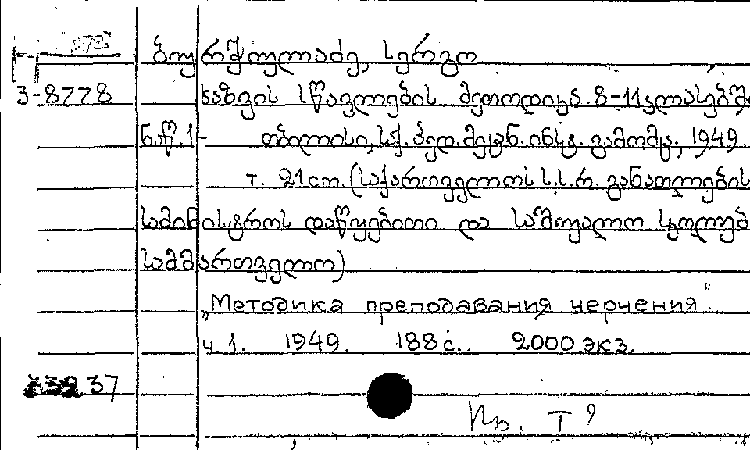 ბურჭულაძე, სერგო
3-8778 ხაზვის სწავლების მეთოდიკა. 8-11 კლასებში
ნ.წ. 1- თბილისი, საქ. პედ. მეცნ. ინსტ. გამომც., 1949
т. 21 cm. (საქართველოს ს.ს.რ. განათლების
სამინისტროს დაწყებითი და საშუალო სკოლებ
სამმართველო)
„Методика преподавания черчения"
ч 1. 1949. 188 с. 2000 экз.
37